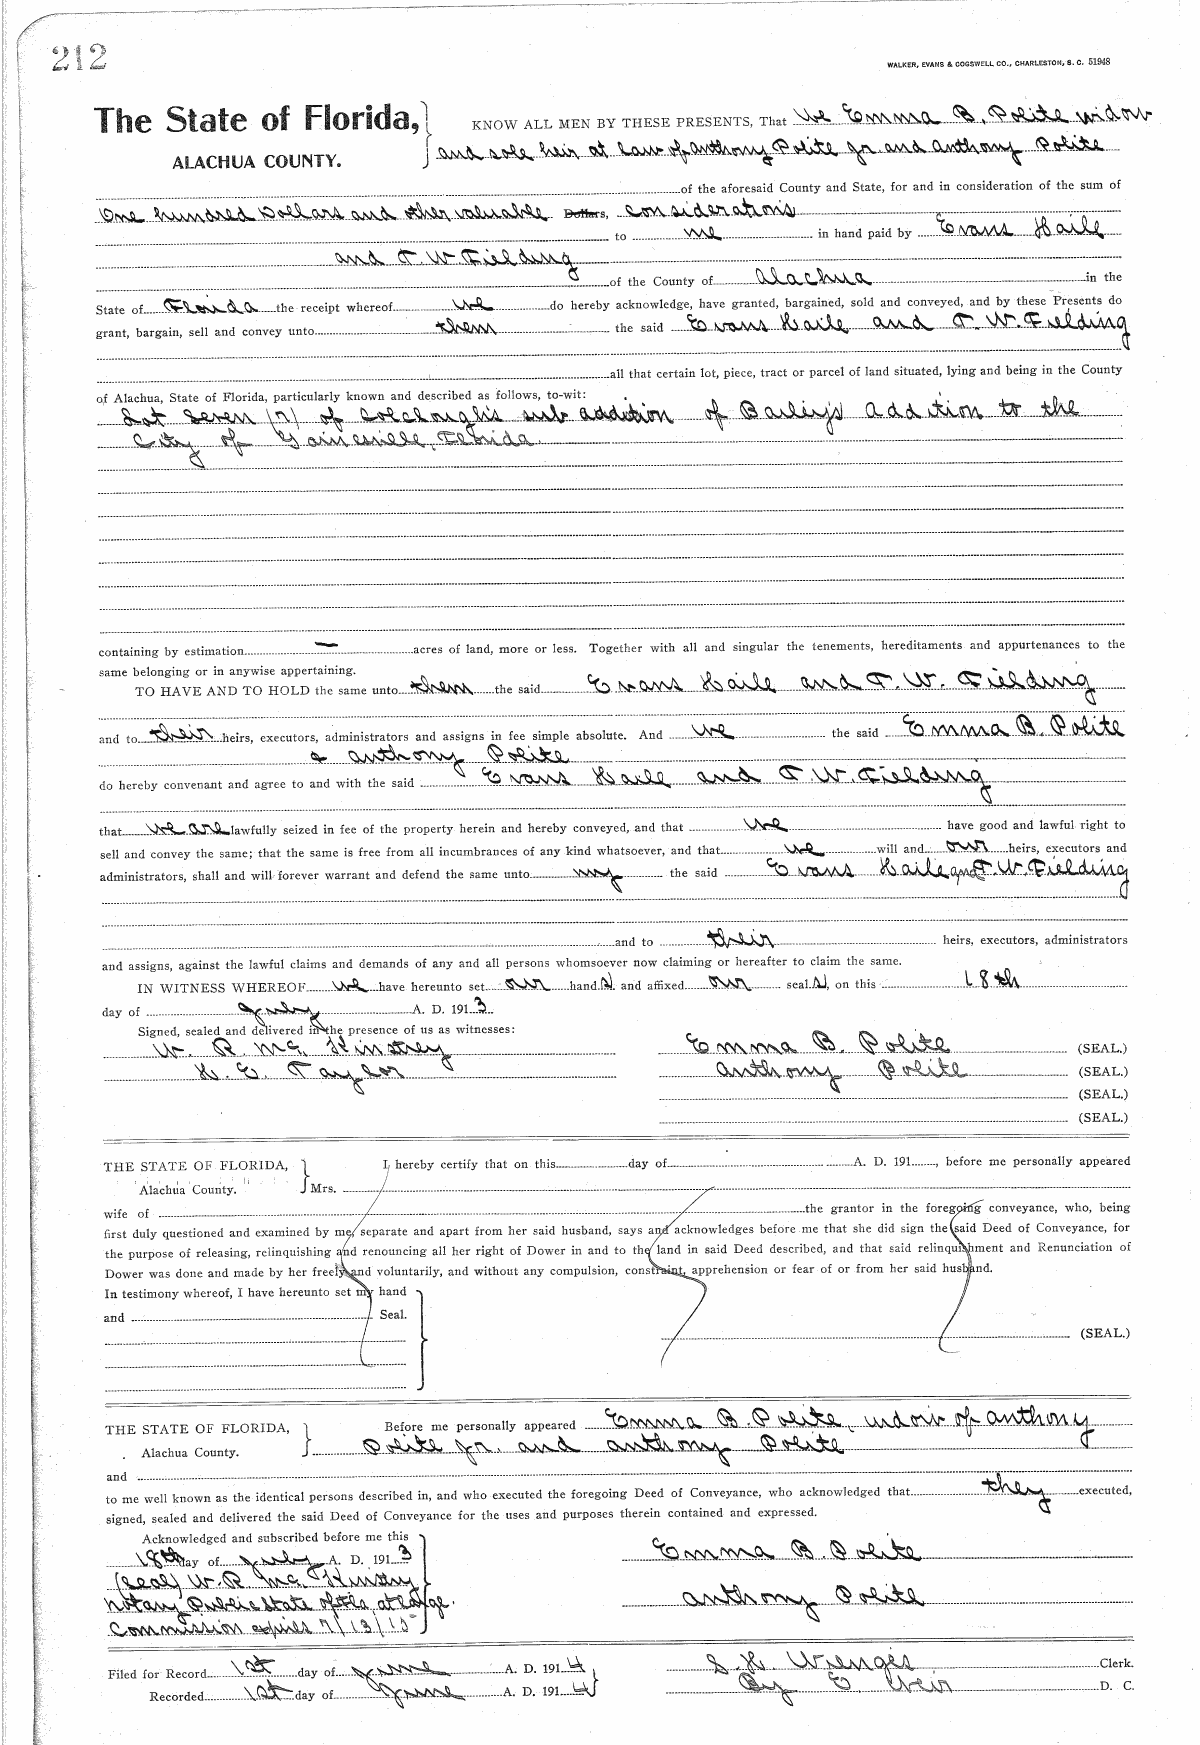 212
WALKER, EVANS & COGSWELL CO., CHARLESTON, S. C. 51948
The State of Florida, KNOW ALL MEN BY THESE PRESENTS, That We Emma B. Polite widow
ALACHUA COUNTY. and sole heir at law of Anthony Polite Jr. and Anthony Polite
of the aforesaid County and State, for and in consideration of the sum of
One hundred Dollars and other valuable Dollars, considerations
to me in hand paid by Evans Haile
and T. W. Fielding
of the County of Alachua in the
State of Florida the receipt whereof we do hereby acknowledge, have granted, bargained, sold and conveyed, and by these Presents do
grant, bargain, sell and convey unto them the said Evans Haile and T. W. Fielding
all that certain lot, piece, tract or parcel of land situated, lying and being in the County
of Alachua, State of Florida, particularly known and described as follows, to-wit:
Lot Seven (7) of Colclough's sub addition of Bailey's Addition to the
City of Gainesville, Florida.
containing by estimation — acres of land, more or less. Together with all and singular the tenements, hereditaments and appurtenances to the
same belonging or in anywise appertaining.
TO HAVE AND TO HOLD the same unto them the said Evans Haile and T. W. Fielding
and to their heirs, executors, administrators and assigns in fee simple absolute. And we the said Emma B. Polite
& Anthony Polite
do hereby convenant and agree to and with the said Evans Haile and T. W. Fielding
that we are lawfully seized in fee of the property herein and hereby conveyed, and that we have good and lawful right to
sell and convey the same; that the same is free from all incumbrances of any kind whatsoever, and that we will and our heirs, executors and
administrators, shall and will forever warrant and defend the same unto my the said Evans Haile and T. W. Fielding
and to their heirs, executors, administrators
and assigns, against the lawful claims and demands of any and all persons whomsoever now claiming or hereafter to claim the same.
IN WITNESS WHEREOF we have hereunto set our hand s and affixed our seal s, on this 18th
day of July A. D. 1913
Signed, sealed and delivered in the presence of us as witnesses:
W. R. McKinstry Emma B. Polite (SEAL.)
H. E. Taylor Anthony Polite (SEAL.)
(SEAL.)
(SEAL.)
THE STATE OF FLORIDA, I hereby certify that on this day of A. D. 191 , before me personally appeared
Alachua County. Mrs.
wife of the grantor in the foregoing conveyance, who, being
first duly questioned and examined by me, separate and apart from her said husband, says and acknowledges before me that she did sign the said Deed of Conveyance, for
the purpose of releasing, relinquishing and renouncing all her right of Dower in and to the land in said Deed described, and that said relinquishment and Renunciation of
Dower was done and made by her freely and voluntarily, and without any compulsion, constraint, apprehension or fear of or from her said husband.
In testimony whereof, I have hereunto set my hand
and Seal.
(SEAL.)
THE STATE OF FLORIDA, Before me personally appeared Emma B. Polite, widow of Anthony
Alachua County. Polite Jr. and Anthony Polite
and
to me well known as the identical persons described in, and who executed the foregoing Deed of Conveyance, who acknowledged that they executed,
signed, sealed and delivered the said Deed of Conveyance for the uses and purposes therein contained and expressed.
Acknowledged and subscribed before me this
18th day of July A. D. 1913 Emma B. Polite
(Seal) W. R. McKinstry
Notary Public State of Fla. at large. Anthony Polite
Commission expires 7/13/15
Filed for Record 1st day of June A. D. 1914 S. H. Wienges Clerk.
Recorded 1st day of June A. D. 1914 By E Weir D. C.